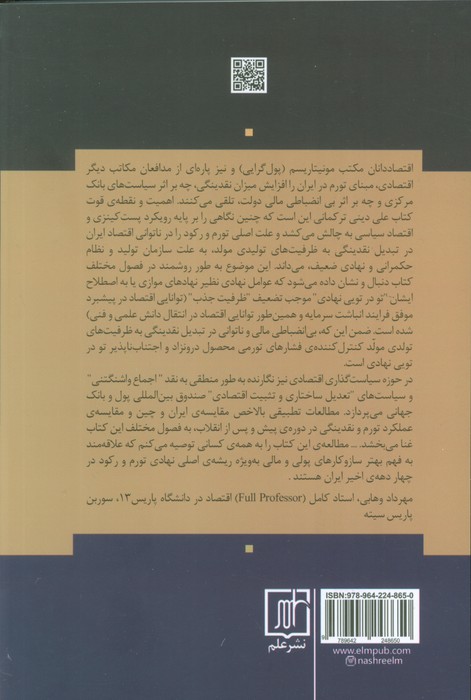 اقتصاددانان مکتب مونیتاریسم (پول‌گرایی) و نیز پاره‌ای از مدافعان مکاتب دیگر
اقتصادی، مبنای تورم در ایران را افزایش میزان نقدینگی، چه بر اثر سیاست‌های بانک
مرکزی و چه بر اثر بی انضباطی مالی دولت، تلقی می‌کنند. اهمیت و نقطه‌ی قوت
کتاب علی دینی ترکمانی این است که چنین نگاهی را بر پایه رویکرد پست‌کینزی و
اقتصاد سیاسی به چالش می‌کشد و علت اصلی تورم و رکود را در ناتوانی اقتصاد ایران
در تبدیل نقدینگی به ظرفیت‌های تولیدی مولد، به علت سازمان تولید و نظام
حکمرانی و نهادی ضعیف، می‌داند. این موضوع به طور روشمند در فصول مختلف
کتاب دنبال و نشان داده می‌شود که عوامل نهادی نظیر نهادهای موازی یا به اصطلاح
ایشان "تو در تویی نهادی" موجب تضعیف "ظرفیت جذب" (توانایی اقتصاد در پیشبرد
موفق فرآیند انباشت سرمایه و همین‌طور توانایی اقتصاد در انتقال دانش علمی و فنی)
شده است. ضمن این که، بی‌انضباطی مالی و ناتوانی در تبدیل نقدینگی به ظرفیت‌های
تولدی مولّد کنترل‌کننده‌ی فشارهای تورمی محصول درونزاد و اجتناب‌ناپذیر تو در
تویی نهادی است.
در حوزه سیاست‌گذاری اقتصادی نیز نگارنده به طور منطقی به نقد "اجماع واشنگتنی"
و سیاست‌های "تعدیل ساختاری و تثبیت اقتصادی" صندوق بین‌المللی پول و بانک
جهانی می‌پردازد. مطالعات تطبیقی بالاخص مقایسه‌ی ایران و چین و مقایسه‌ی
عملکرد تورم و نقدینگی در دوره‌ی پیش و پس از انقلاب، به فصول مختلف این کتاب
غنا می‌بخشد. ... مطالعه‌ی این کتاب را به همه‌ی کسانی توصیه می‌کنم که علاقه‌مند
به فهم بهتر سازوکارهای پولی و مالی به‌ویژه ریشه‌ی اصلی نهادی تورم و رکود در
چهار دهه‌ی اخیر ایران هستند .
مهرداد وهابی، استاد کامل (Full Professor) اقتصاد در دانشگاه پاریس۱۳، سوربن
پاریس سیته
نشر علم
ISBN: 978-964-224-865-0
9 789642 248650
www.elmpub.com
nashreelm